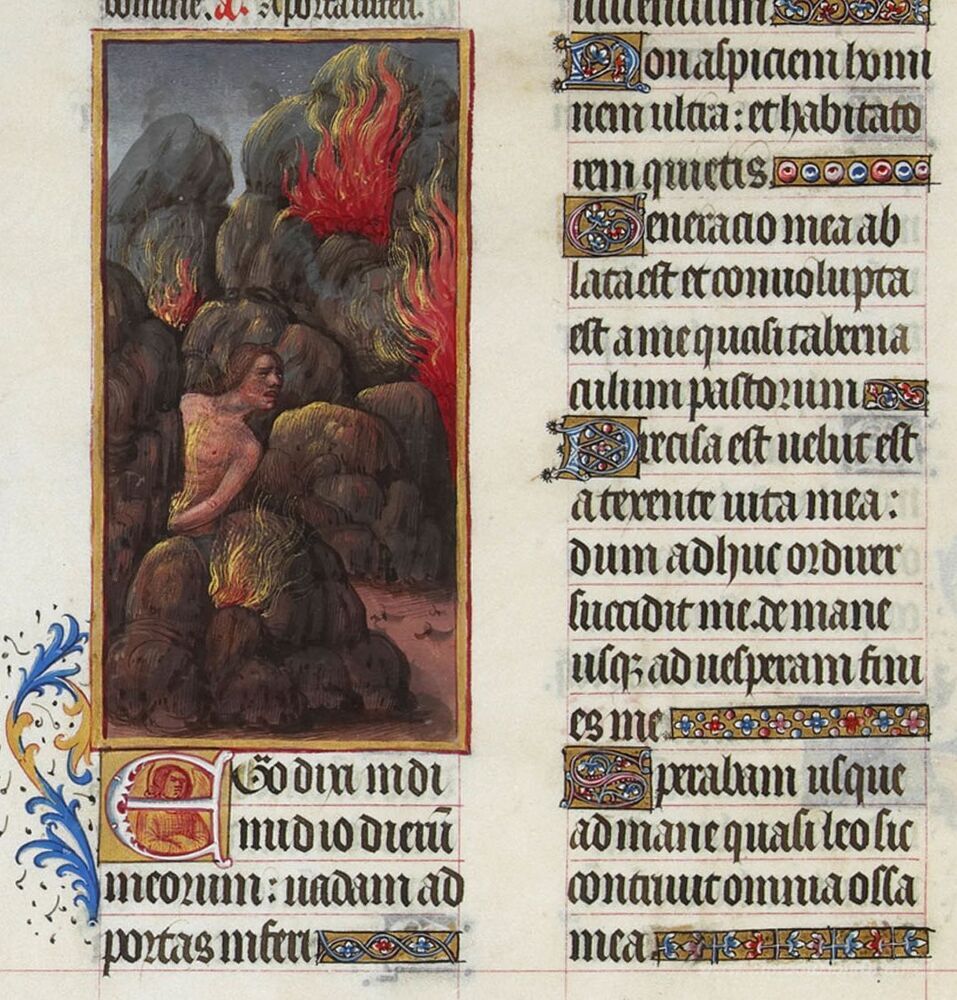 domine. a. A porta inferi.
Ego dixi in di
midio dierū
meorum: uadam ad
portas inferi
uiuencium
Non aspiciem homi
nem ultra: et habitato
rem quietis.
Generacio mea ab
lata est et conuoluta
est a me quasi taberna
culum pastorum
Precisa est uelut est
a texente uita mea:
dum adhuc ordirer
succidit me. de mane
usq; ad uesperam fini
es me
Sperabam usque
ad mane quasi leo sic
contriuit omnia ossa
mea